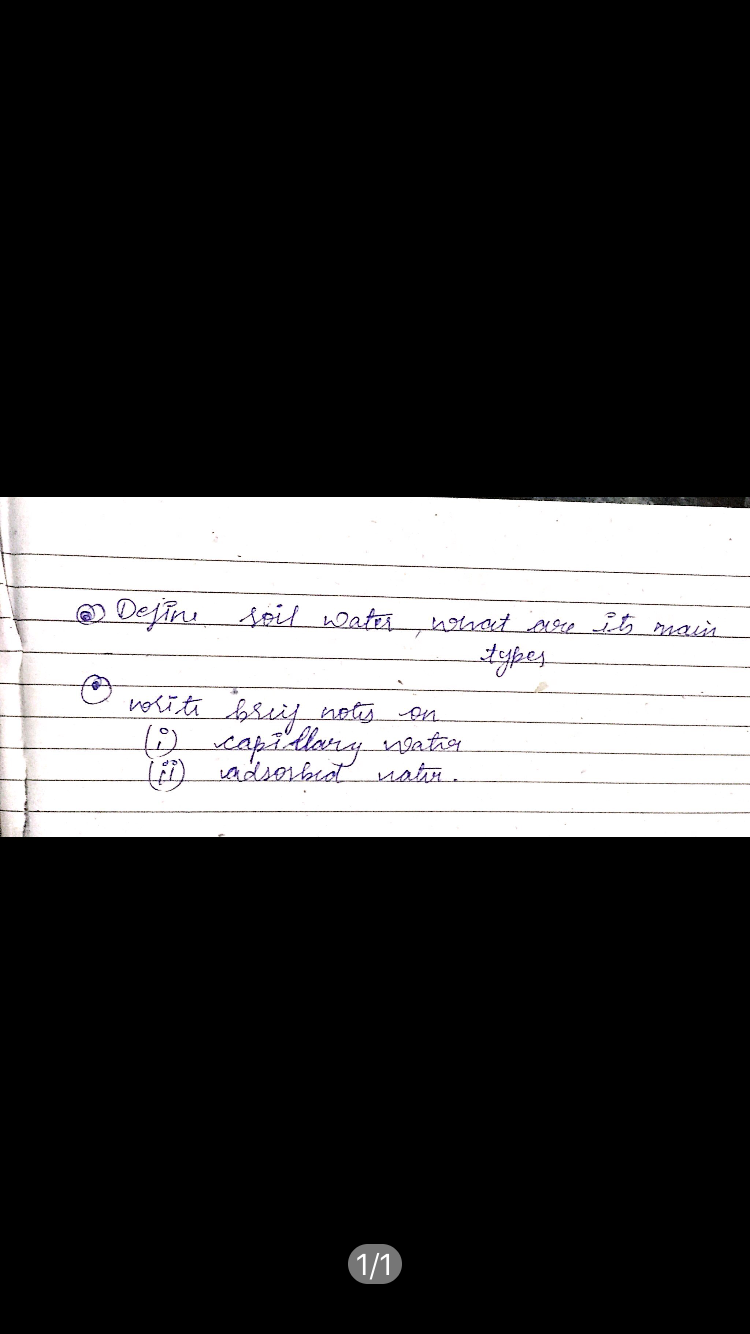 Define soil water, what are its main
types
write brief notes on
(i) capillary water
(ii) adsorbed water.
1/1